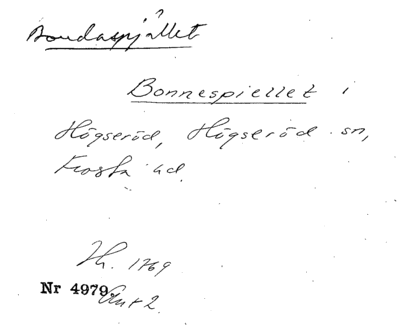 ?
Bondaspjället
Bonnespiellet i
Högseröd, Högseröd sn,
Frosta hd.
Th. 1769
Nr 4979
Akt 2.